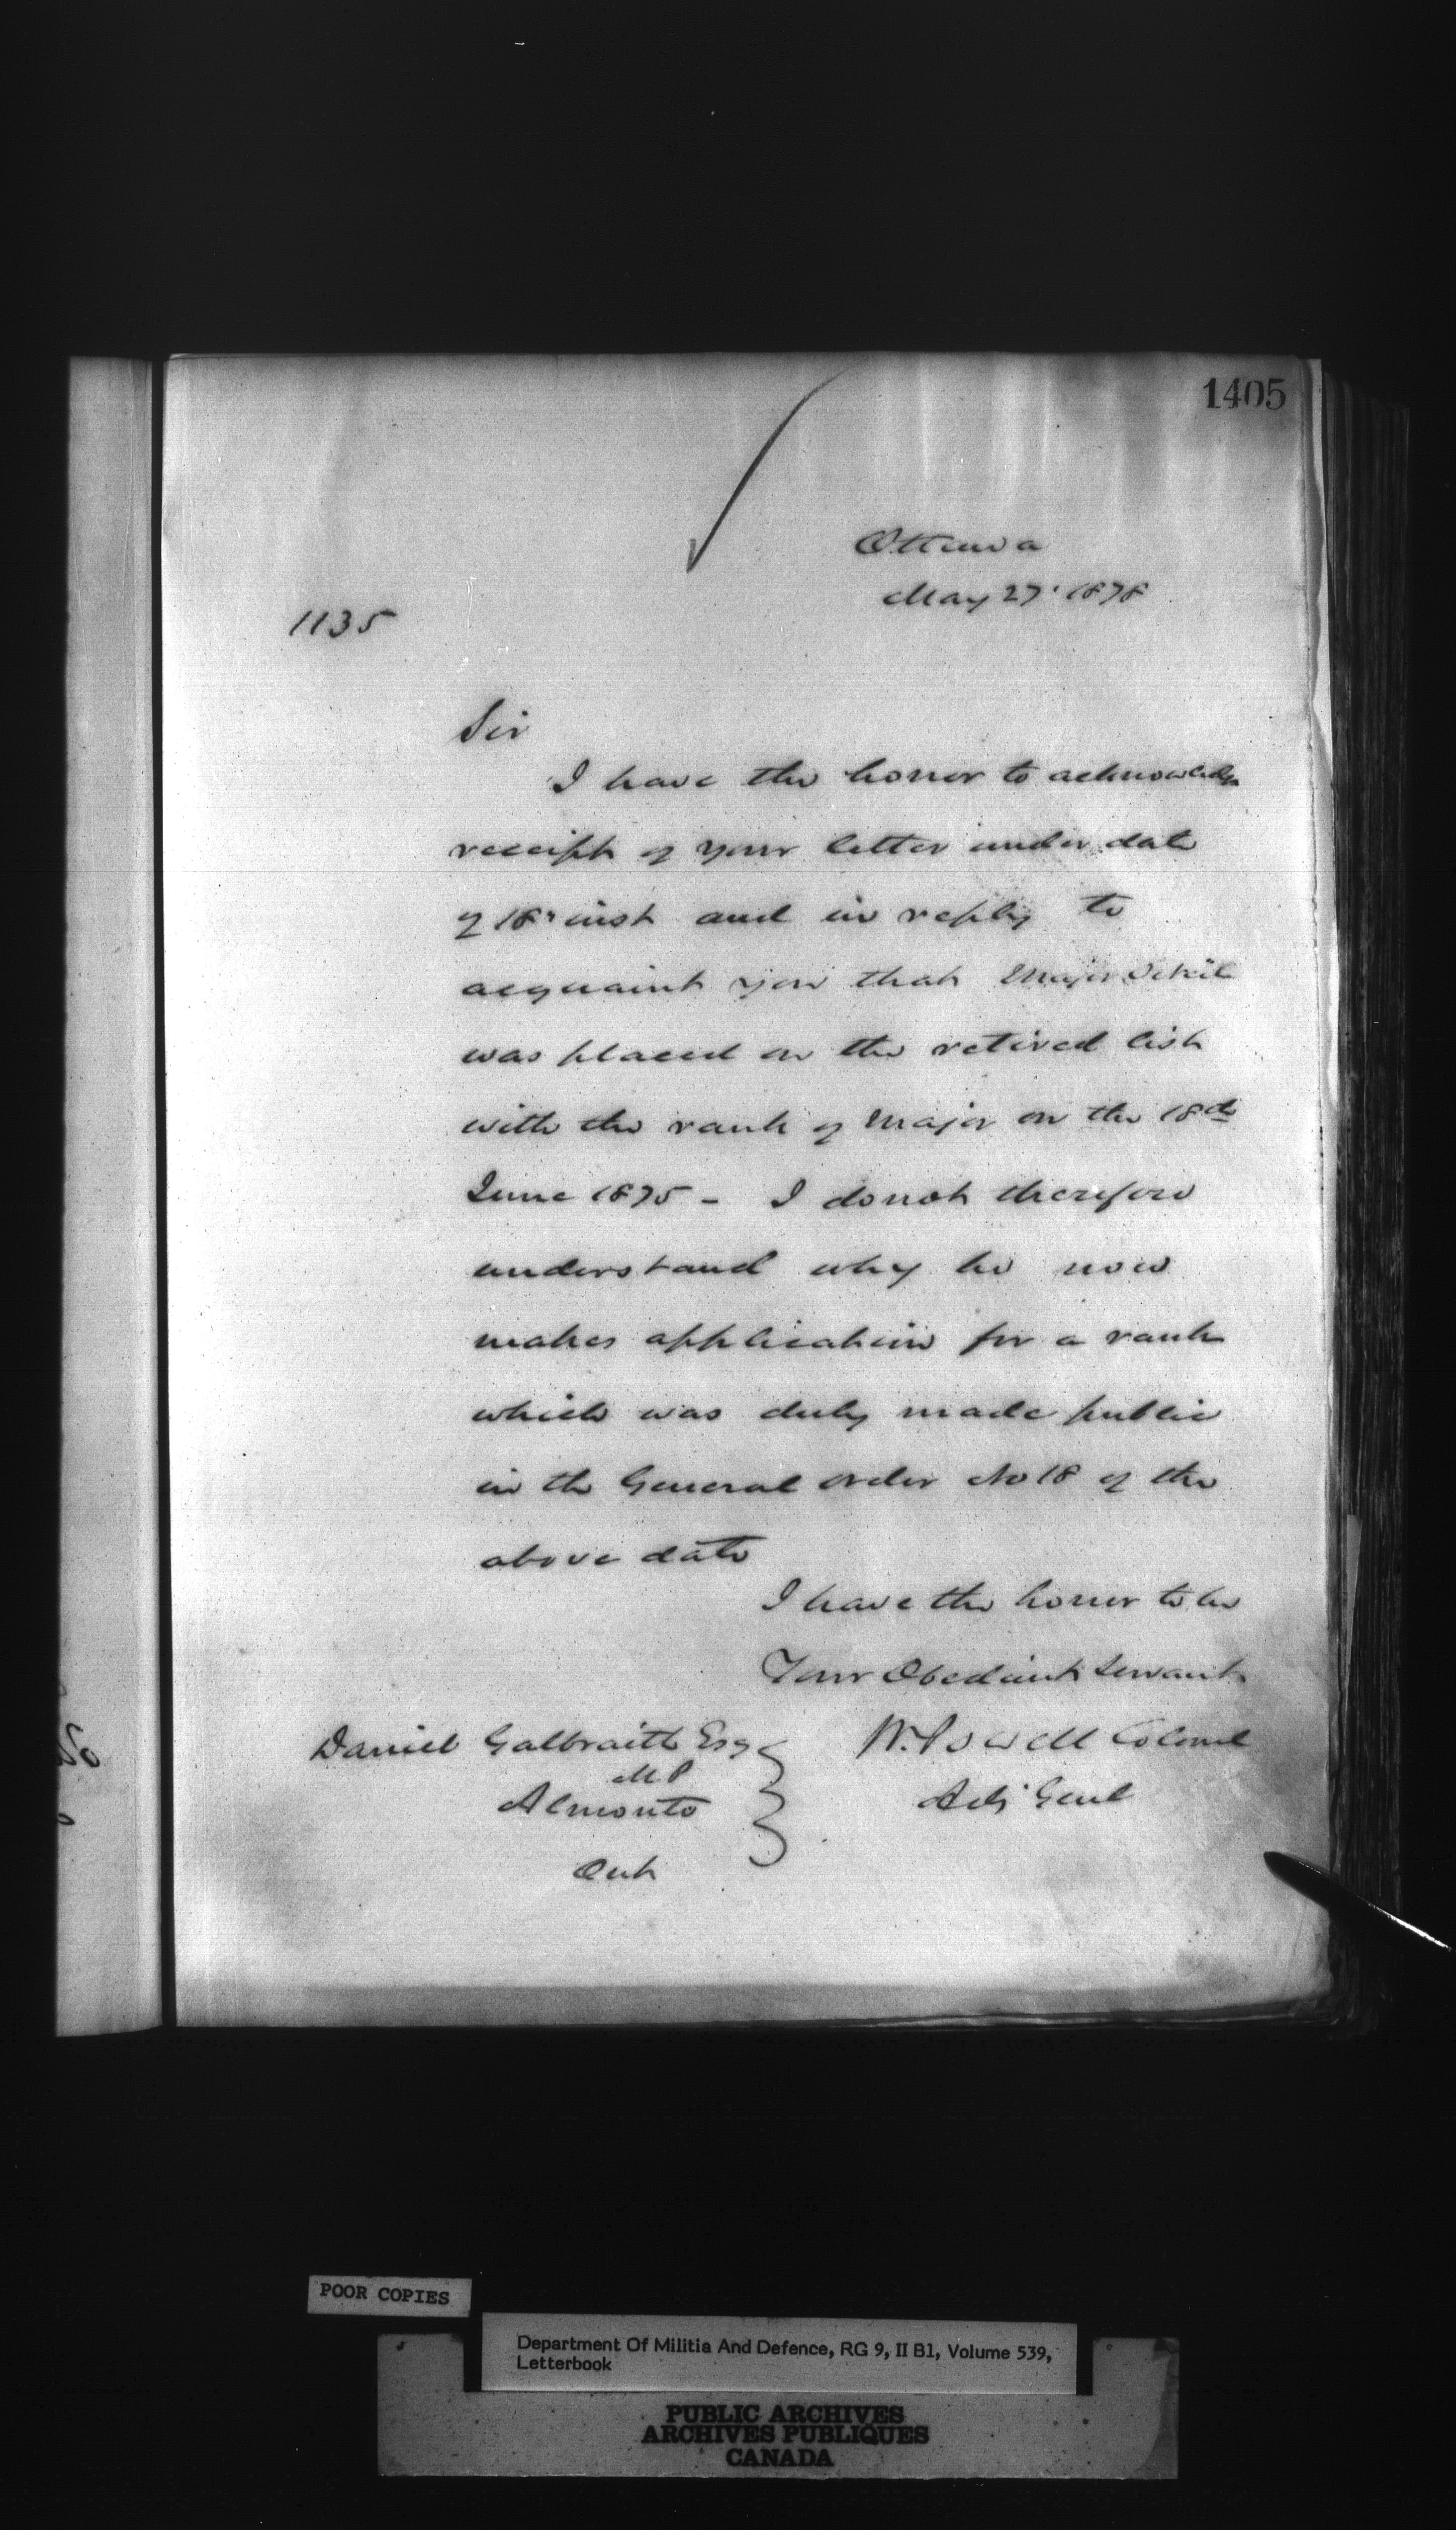 1405
Ottawa
May 27. 1878
1135
Sir
I have the honor to acknowledge
receipt of your letter under date
of 18th inst and in reply to
acquaint you that Major
was placed on the retired list
with the rank of Major on the 18th
June 1875 - I do not therefore
understand why he now
makes application for a rank
which was duly made public
in the General order No 18 of the
above date
I have the honor to be
Your Obedient Servant
W. Powell Colonel
Adj Genl
Daniel Galbraith Esq
M P
Almonte
Ont
POOR COPIES
Department Of Militia And Defence, RG 9, II B1, Volume 539,
Letterbook
PUBLIC ARCHIVES
ARCHIVES PUBLIQUES
CANADA